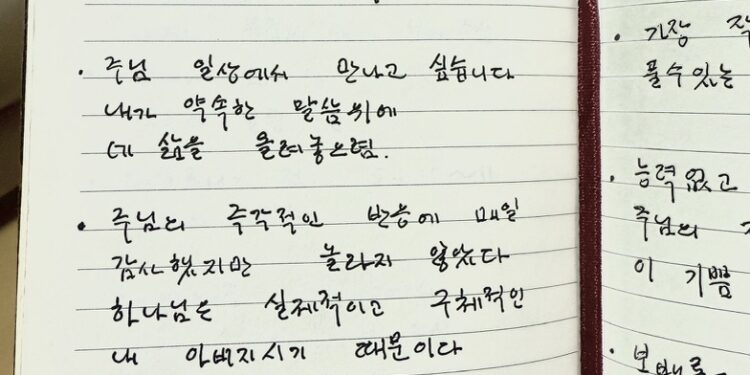 · 주님 일상에서 만나고 싶습니다
내가 약속한 말씀위에
네 삶을 올려놓으렴.
· 주님의 즉각적인 반응에 매일
감사했지만 놀라지 않았다
하나님은 실제적이고 구체적인
내 아버지시기 때문이다
· 가장
풀수있는
· 능력없고
주님의
이 기쁨